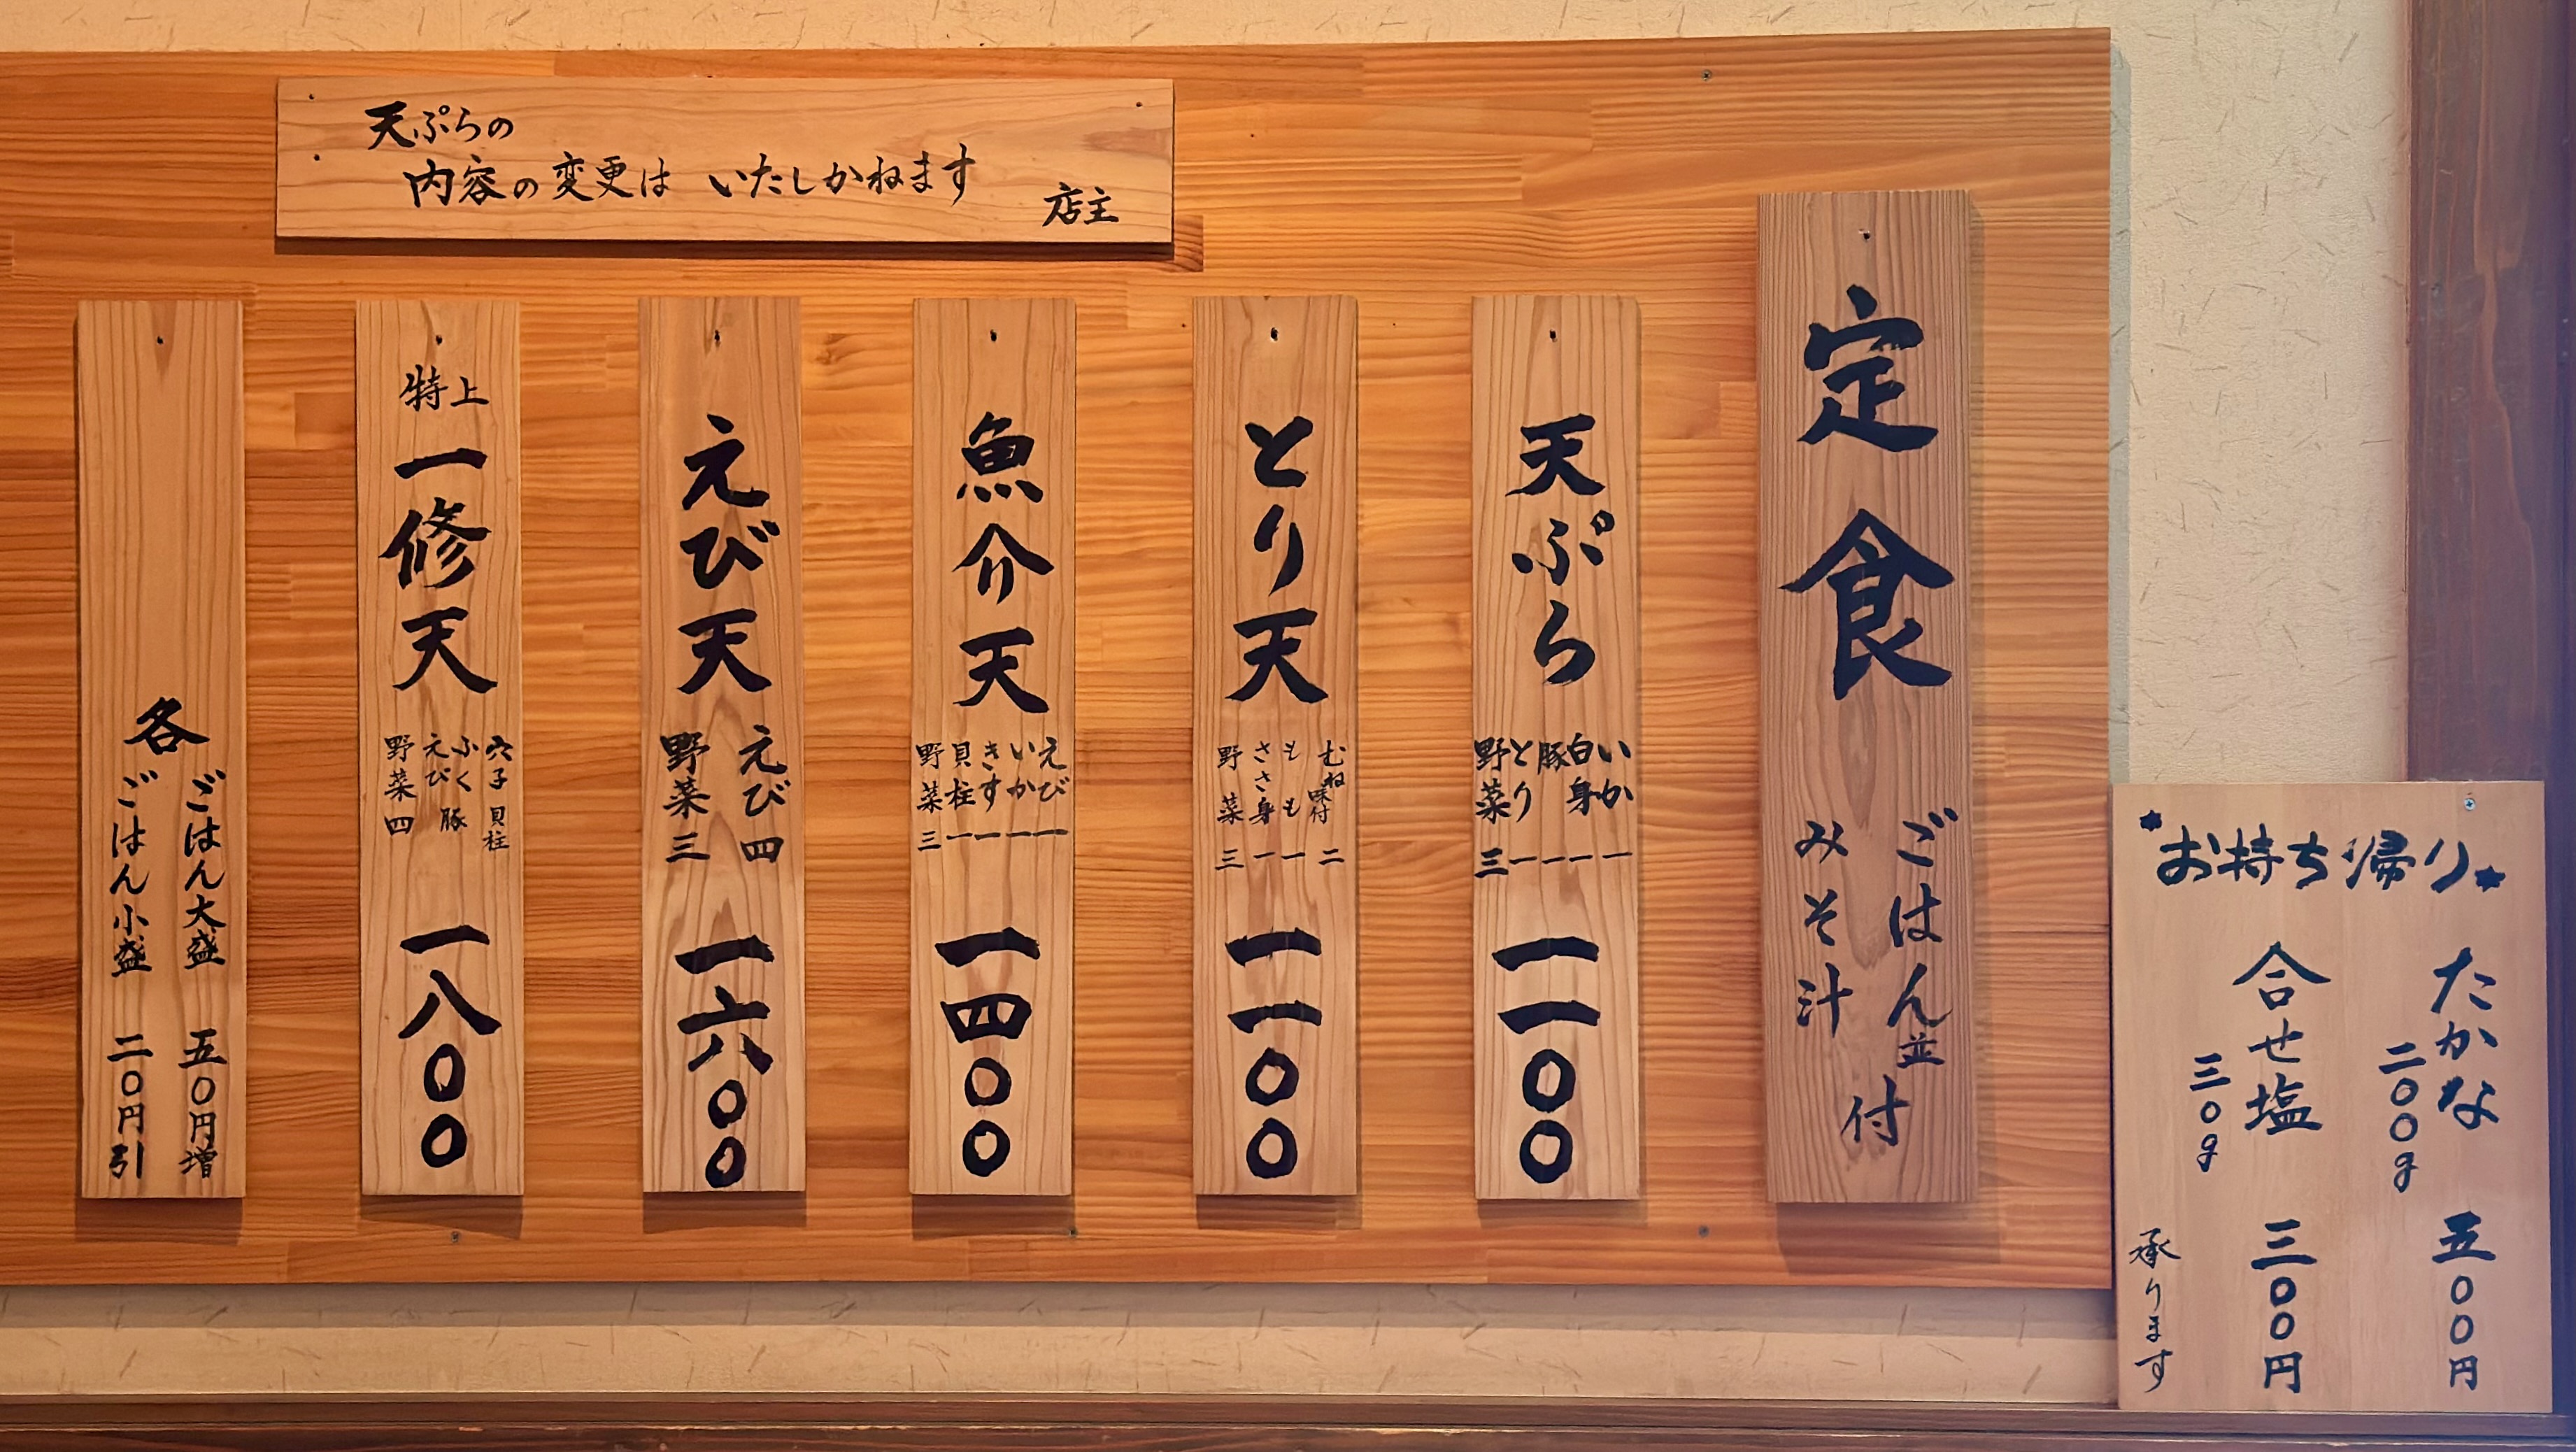 天ぷらの
内容の変更は いたしかねます
店主
定食
ごはん並
みそ汁
付
天ぷら
いか 一
白身 一
豚 一
とり 一
野菜 三
一一〇〇
とり天
むね味付 二
もも 一
ささ身 一
野菜 三
一一〇〇
魚介天
えび 一
いか 一
きす 一
貝柱 一
野菜 三
一四〇〇
えび天
えび 四
野菜 三
一六〇〇
特上
一修天
穴子 貝柱
ふく 豚
えび
野菜四
一八〇〇
各
ごはん大盛 五〇円増
ごはん小盛 二〇円引
*お持ち帰り*
たかな 五〇〇円
二〇〇g
合せ塩 三〇〇円
三〇g
承ります